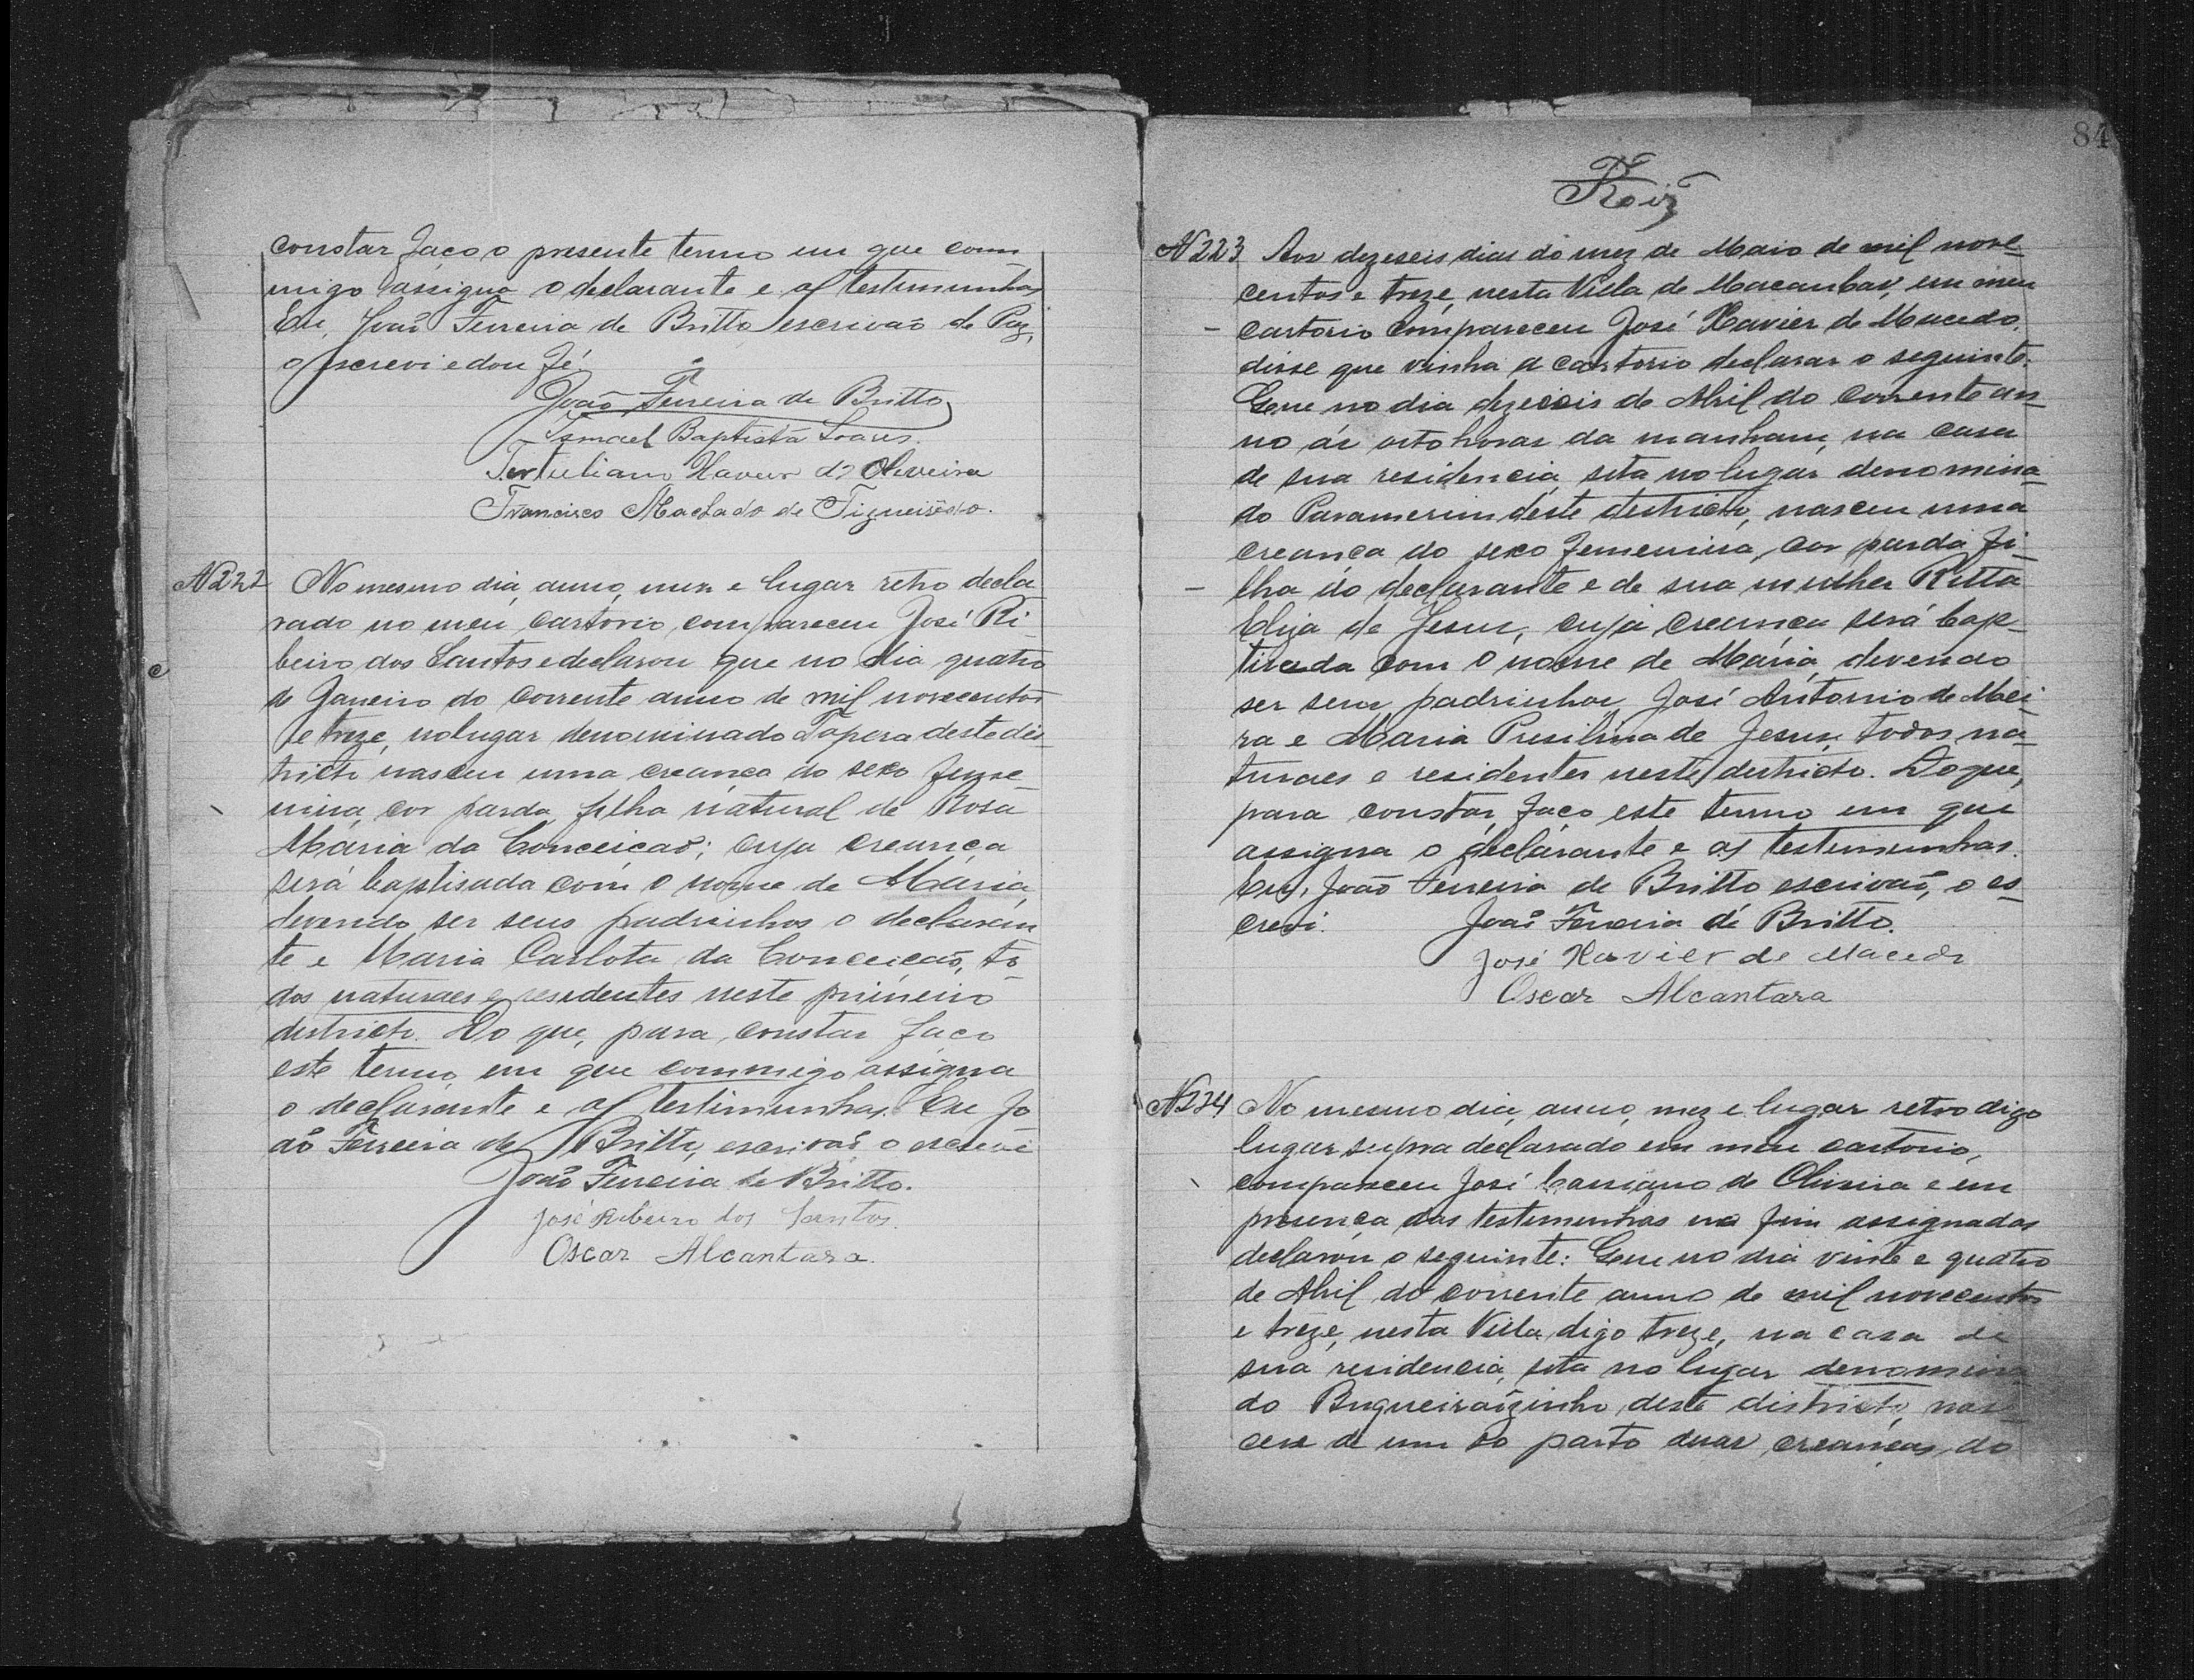 constar faço o presente termo em que com
migo assigna o declarante e as testemunhas
Eu, João Ferreira de Britto escrivão de Paz,
o escrevi e dou fé.
João Ferreira de Britto
Ismael Baptista Soares.
Tertuliano Xavier de Oliveira
Francisco Machado de Figueirêdo.
N 222 No mesmo dia, anno, mez e lugar retro decla
rado no meu cartorio, compareceu José Ri-
beiro dos Santos e declarou que no dia quatro
de Janeiro do corrente anno de mil novecentos
e treze, no lugar denominado Tapera deste dis-
tricto nasceu uma creança do sexo feme-
nina, cor parda, filha natural de Rosa
Maria da Conceição; cuja creança
será baptisada com o nome de Maria,
devendo ser seus padrinhos o declaran
te e Maria Carlota da Conceição, to-
dos naturaes e residentes neste primeiro
districto. Do que, para constar faço
este termo em que commigo assigna
o declarante e as testimunhas. Eu Jo
ão Ferreira de Britto, escrivão o escrevi
João Ferreira de Britto.
José Ribeiro dos Santos.
Oscar Alcantara.
84
Roiz
N 223 Aos dezeseis dias do mez de Maio de mil nove-
centos e treze, nesta Villa de Macaubas, em meu
cartorio compareceu José Xavier de Macedo,
disse que vinha a cartorio declarar o seguinte:
Que no dia dezeseis de Abril do corrente an-
no ás oito horas da manham, na casa
de sua residencia, sita no lugar denomina-
do Paramerim deste destricto, nasceu uma
creança do sexo femenina, cor parda fi-
lha do declarante e de sua mulher Ritta
Eliza de Jesus, cuja creança será bap-
tisada com o nome de Maria, devendo
ser seus padrinhos José Antonio de Mei-
ra e Maria Presilina de Jesus, todos na-
turaes e residentes neste destricto. Do que,
para constar, faço este termo em que
assigna o declarante e as testemunhas.
Eu, João Ferreira de Britto escrivão, o es-
crevi. João Ferreira de Britto.
José Xavier de Macedo
Oscar Alcantara
N 224 No mesmo dia, anno, mez e lugar retro digo
lugar supra declarado em meu cartorio,
compareceu José Cassiano de Oliveira e em
presença das testemunhas no fim assignadas
declarou o seguinte: Que no dia vinte e quatro
de Abril do corrente anno de mil novecentos
e treze, nesta Villa, digo treze, na casa de
sua residencia, sita no lugar denomina
do Buqueirãozinho deste districto, nas-
ceu de um só parto duas creanças, do